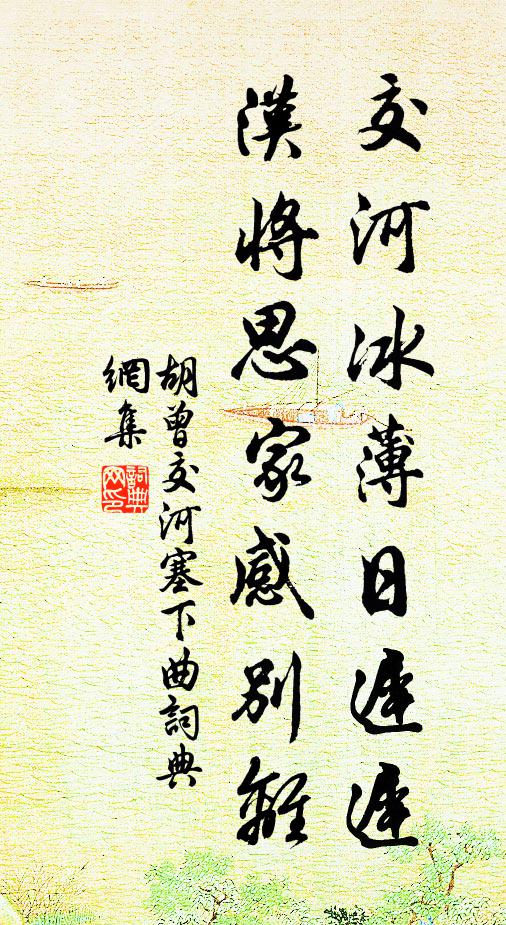 交河冰薄日遲遲
漢將思家感別離
胡曾交河塞下曲詞典
網集
詞典
網印